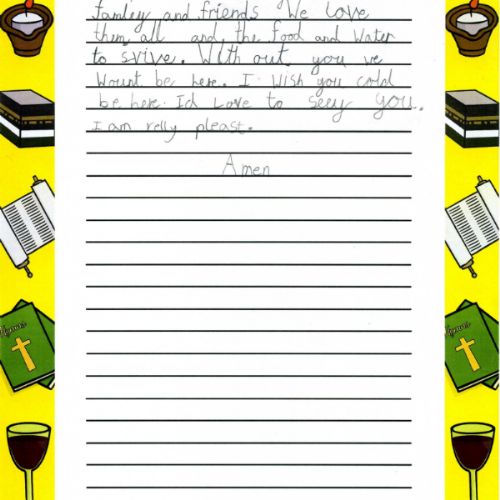 Famley and friends We Love
them all and, the food and water
to svive. With out you we
wount be here. I wish you cold
be here. Id Love to seey you.
I am relly pleast.
Amen
Hymns
Hymns